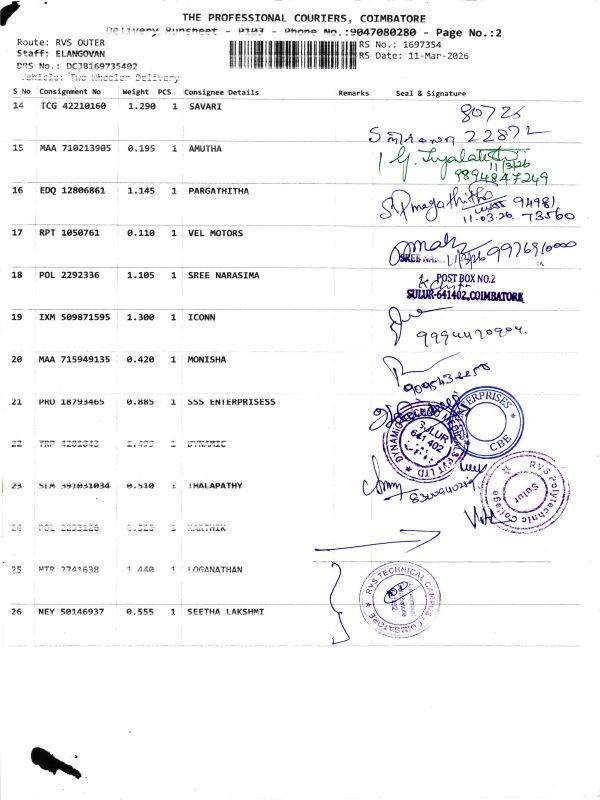 THE PROFESSIONAL COURIERS, COIMBATORE
Delivery Runsheet - P103 - Phone No.:9047080280 - Page No.:2
Route: RVS OUTER
Staff: ELANGOVAN
DRS No.: DCJB169735402
Vehicle: Two Wheeler Delivery
RS No.: 1697354
RS Date: 11-Mar-2026
S No Consignment No Weight PCS Consignee Details Remarks Seal & Signature
14 TCG 42210160 1.290 1 SAVARI
80726
22872
15 MAA 710213905 0.195 1 AMUTHA
11/3/26
9894847249
16 EDQ 12806861 1.145 1 PARGATHITHA
94981
11.03.26 73560
17 RPT 1050761 0.110 1 VEL MOTORS
11/3/26
18 POL 2292336 1.105 1 SREE NARASIMA
POST BOX NO.2
SULUR-641402,COIMBATORE
19 IXM 509871595 1.300 1 ICONN
20 MAA 715949135 0.420 1 MONISHA
21 PRO 18793465 0.885 1 SSS ENTERPRISESS
ENTERPRISES
CBE
SULUR
641 402
22 1 DYNAMIC
23 SLM 391031034 0.510 1 THALAPATHY
RVS Polytechnic College
Sulur
24 POL 2293126 1 KARTHIK
25 MTR 2741638 1.440 1 LOGANATHAN
26 NEY 50146937 0.555 1 SEETHA LAKSHMI
RVS TECHNICAL CAMPUS - COIMBATORE